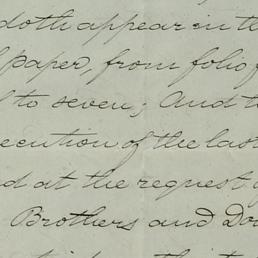 doth appear in th
paper, from folio f
to seven; And t
ecution of the last
d at the request
Brothers and Do